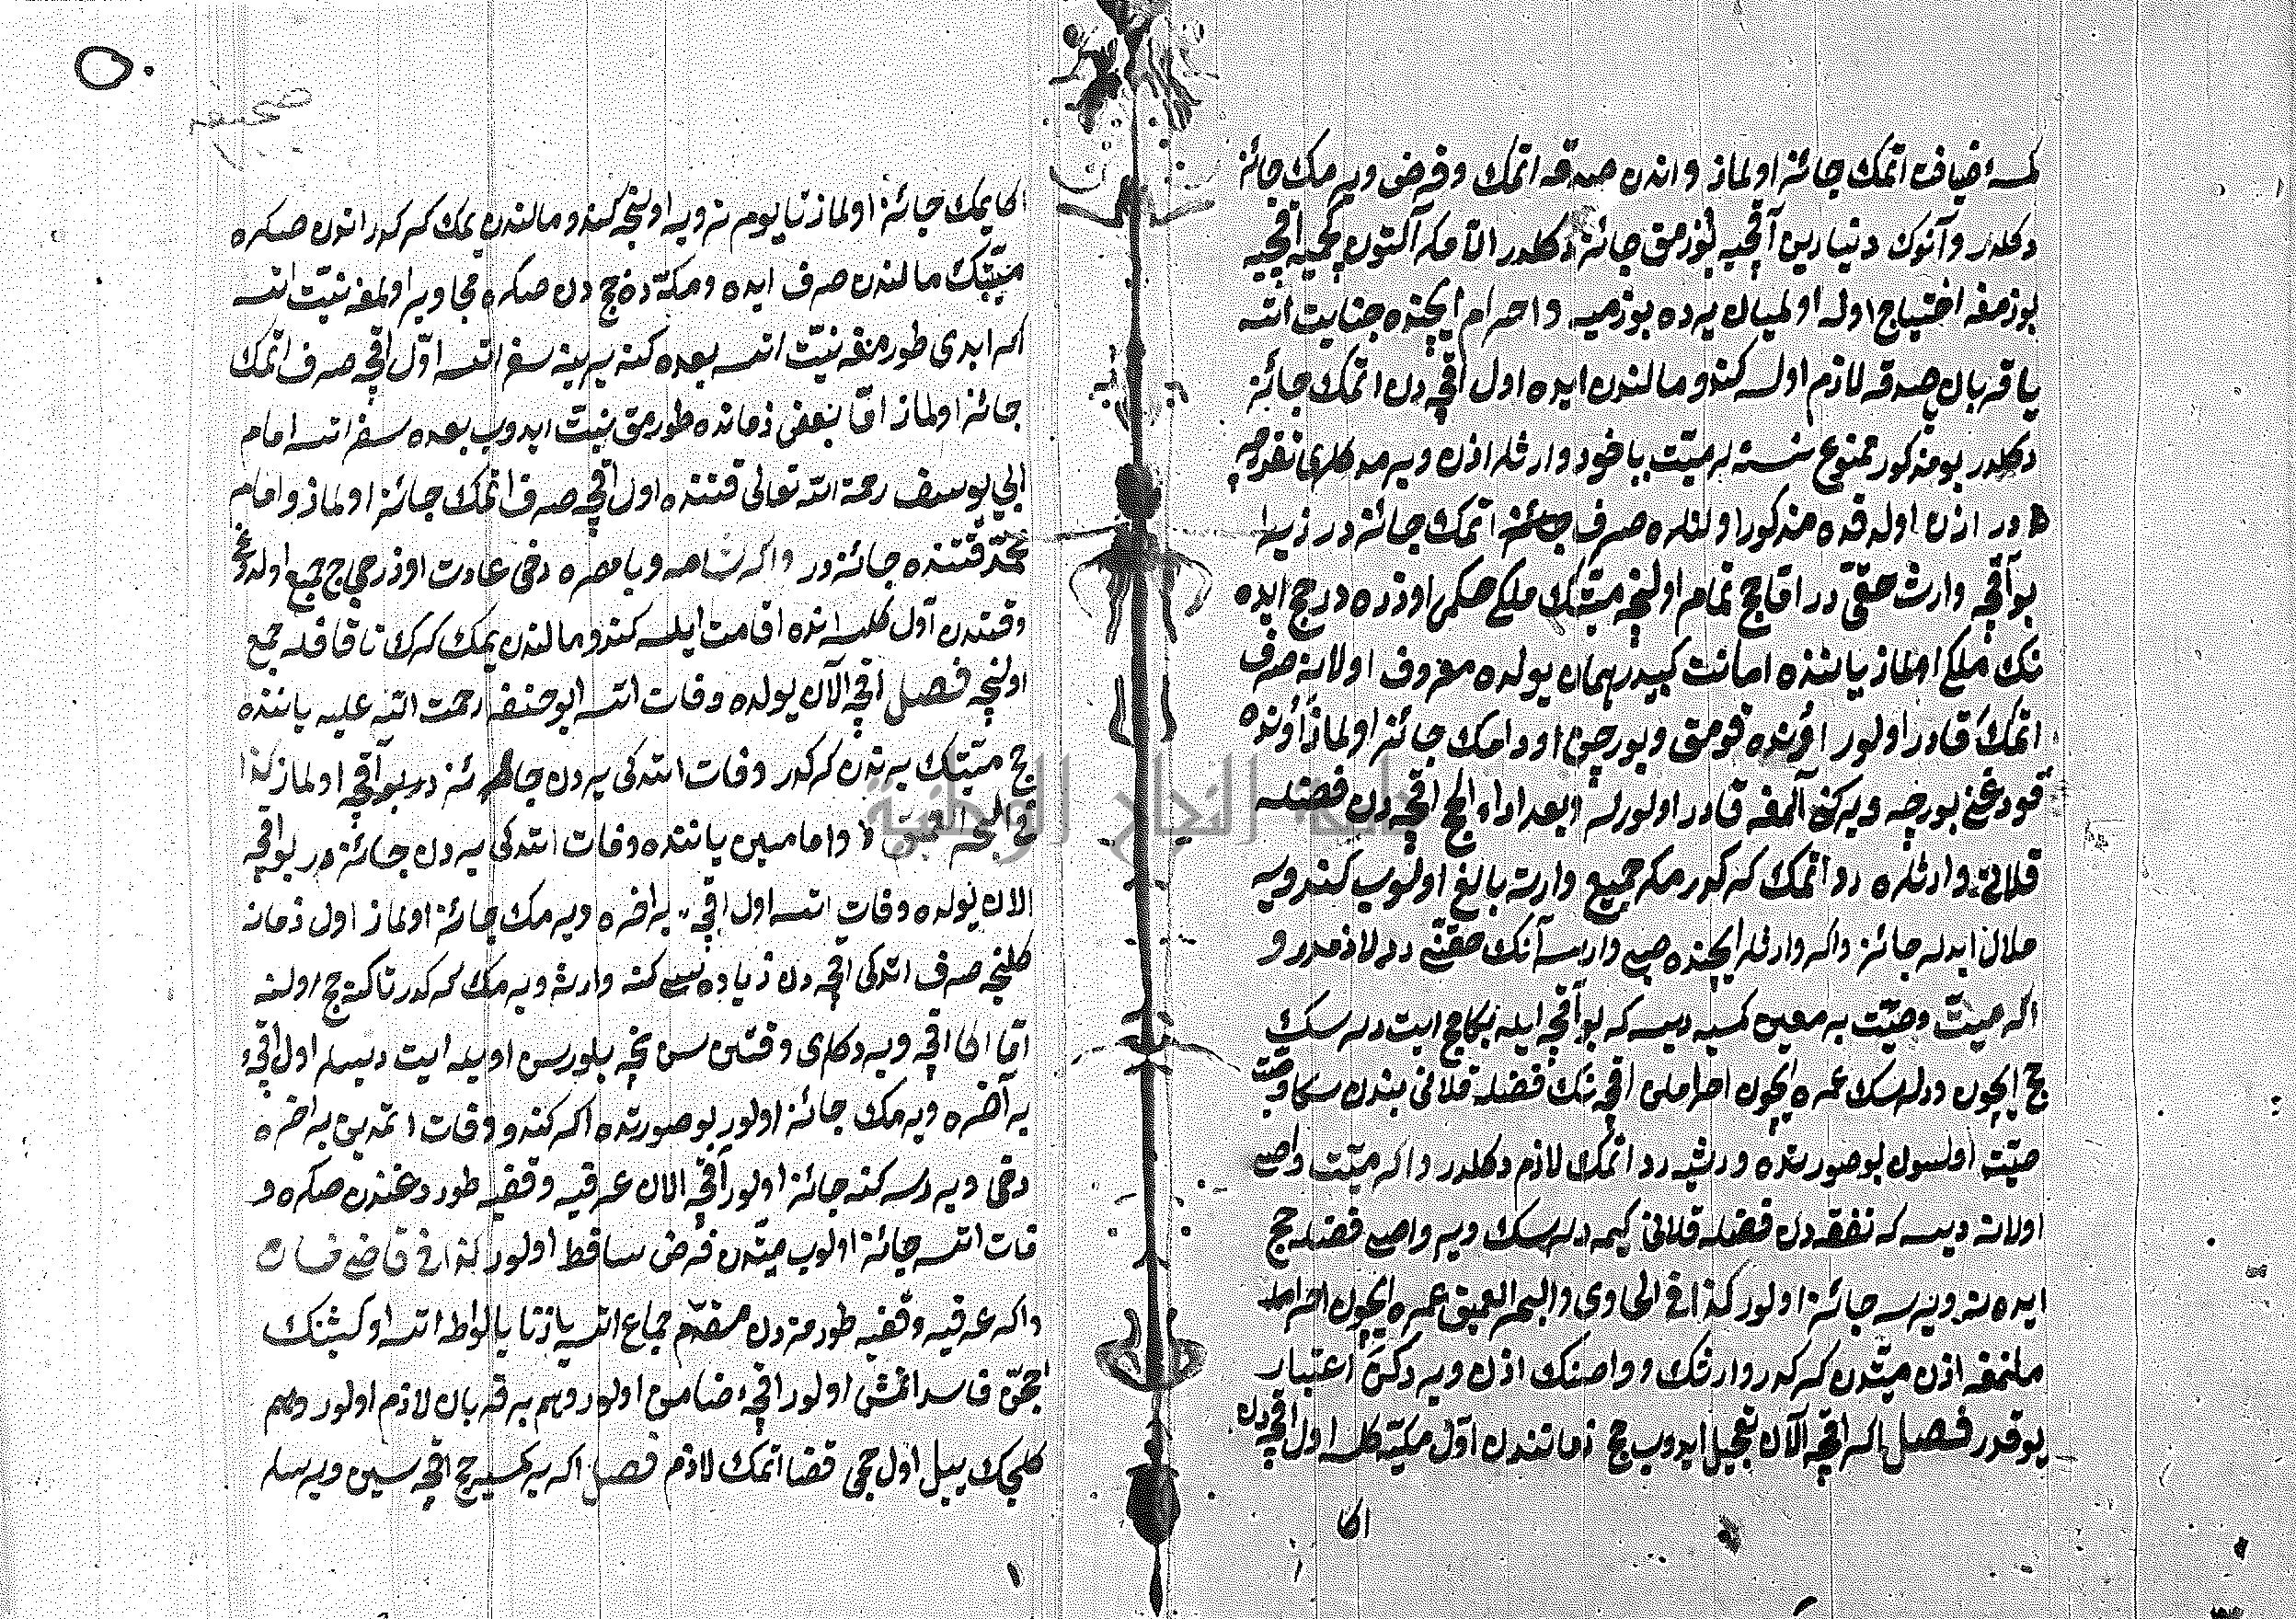 كمسه ضيافت اتمك جائز اولماز واندن صدقه اتمك وقرض ويرمك جائز
دكلدر وآنوك دنيارين آقچيه بوزمق جائز دكلدر الا مكر آلتون كچميه اقچيه
بوزمغه احتياج اوله اولميان يرده بوزميه واحرام ايچنده جنايت اتسه
يا قربان صدقه لازم اولسه كندو مالندن ايده اول اقچه دن اتمك جائز
دكلدر بو مذكور ممنوع نسنه لر ميت ياخود وارثلر اذن ويرمدكلرى تقديرجه
در اذن اولدقده مذكور اولنلره صرف اتمك جائز در زيرا
بو آقچه وارث حقى در اما حج تمام اولنجه ميتك ملكى حكمى اوزره در حج ايده
نك ملكى اولماز ياننده امانت كبيدر همان يولده معروف اولانه صرف
اتمك قادر اولور اوننده قومق وبورجون اودامك جائز اولماز اونده
قودغن بورجه ويركن آلمغه قادر اولورلر وبعد اداء الحج اقچه دن فضله
قلانى وارثلره رد اتمك كركدر مكر جميع وارث بالغ اولوب كندويه
حلال ايدلر جائز واكر وارثلر ايچنده صبى وارسه آنك حقنى رد لازمدر و
اكر ميت وصيت بر معين كمسيه ديسه كه بو آقچه ايله بكا حج ايت دلرسك
حج ايچون ودلرسك عمره ايچون احراملن اقچه نك فضله قلانى بندن سكا وصيت
صيت اولسون بو صورتده ورثيه رد اتمك لازم دكلدر واكر ميت واصى
اولانه ديسه كه نفقه دن فضله قلانى كيمه دلرسك وير واصى فضله حج
ايده نه ويرسه جائز اولور كذا فى الحاوى والبحر العميق عمره ايچون احرامه
ملنمغه اذن ميتدن كركدر وارثك وواصنك اذن ويردكى اعتبار
يوقدر فصل اكر اقچه آلان تعجيل ايدوب حج زمانندن اول مكيه كلسه اول اقچه دن
اكا
صحيفه
اكا يمك جائز اولماز تا يوم ترويه اولنجه كندو مالندن يمك كركدر اندن صكره
ميتك مالندن صرف ايده ومكه ده حج دن صكره مجاوير اولمغه نيت اتسه
اكر ابدى طورمغه نيت اتسه بعده كنه يرينه سفر اتسه اول اقچه صرف اتمك
جائز اولماز اما بعض زمانده طورمق نيت ايدوب بعده سفر اتسه امام
ابي يوسف رحمة الله تعالى قتنده اول اقچه صرف اتمك جائز اولماز وامام
محمد قتنده جائز در واكر شامه ويا مصره دخى عادت اوزر حجاج جمع اولدوغى
وقتندن آول كلسه انده اقامت ايلسه كندو مالندن يمك كرك تا قافله جمع
اولنجه فصل اقچه آلان يولده وفات اتسه ابو حنيفه رحمت الله عليه ياننده
حج ميتك يرندن كركدر وفات اتدكى يردن جائز در بو آقچه اولماز كذا
فى البحر العميق وامامين ياننده وفات اتدكى يردن جائز در بو اقچه
الان يولده وفات اتسه اول اقچه ير اخره ويرمك جائز اولماز اول زمانه
كلنجه صرف اتدكى اقچه دن زياده سى كنه وارثه ويرمك كركدر تاكه حج اولنه
اما اكا اقچه ويردكلرى وقتين سن نيجه بلورسن اويله ايت ديسلر اول اقچه
بر آخره ويرمك جائز اولور بو صورتده اكر كندو وفات اتمدين بر اخره
دخى ويردسه كنه جائز اولور اقچه الان عرفيه وقفيه طوردغندن صكره و
فات اتسه جائز اولوب ميتدن فرض ساقط اولور كذا فى قاضى خان
واكر عرفيه وقفيه طورمزدن مقدم جماع اتسه يا زنا يا لواطه اتسه او كشنك
حجى فاسد اتمش اولور اقچه ضامن اولور وهم بر قربان لازم اولور وهم
كلجك ييل اول حجى قضا اتمك لازم فصل اكر بر كمسيه حج اقچه سين ويرسلر